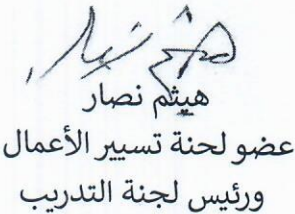 هيثم نصار
عضو لحنة تسيير الأعمال
ورئيس لجنة التدريب